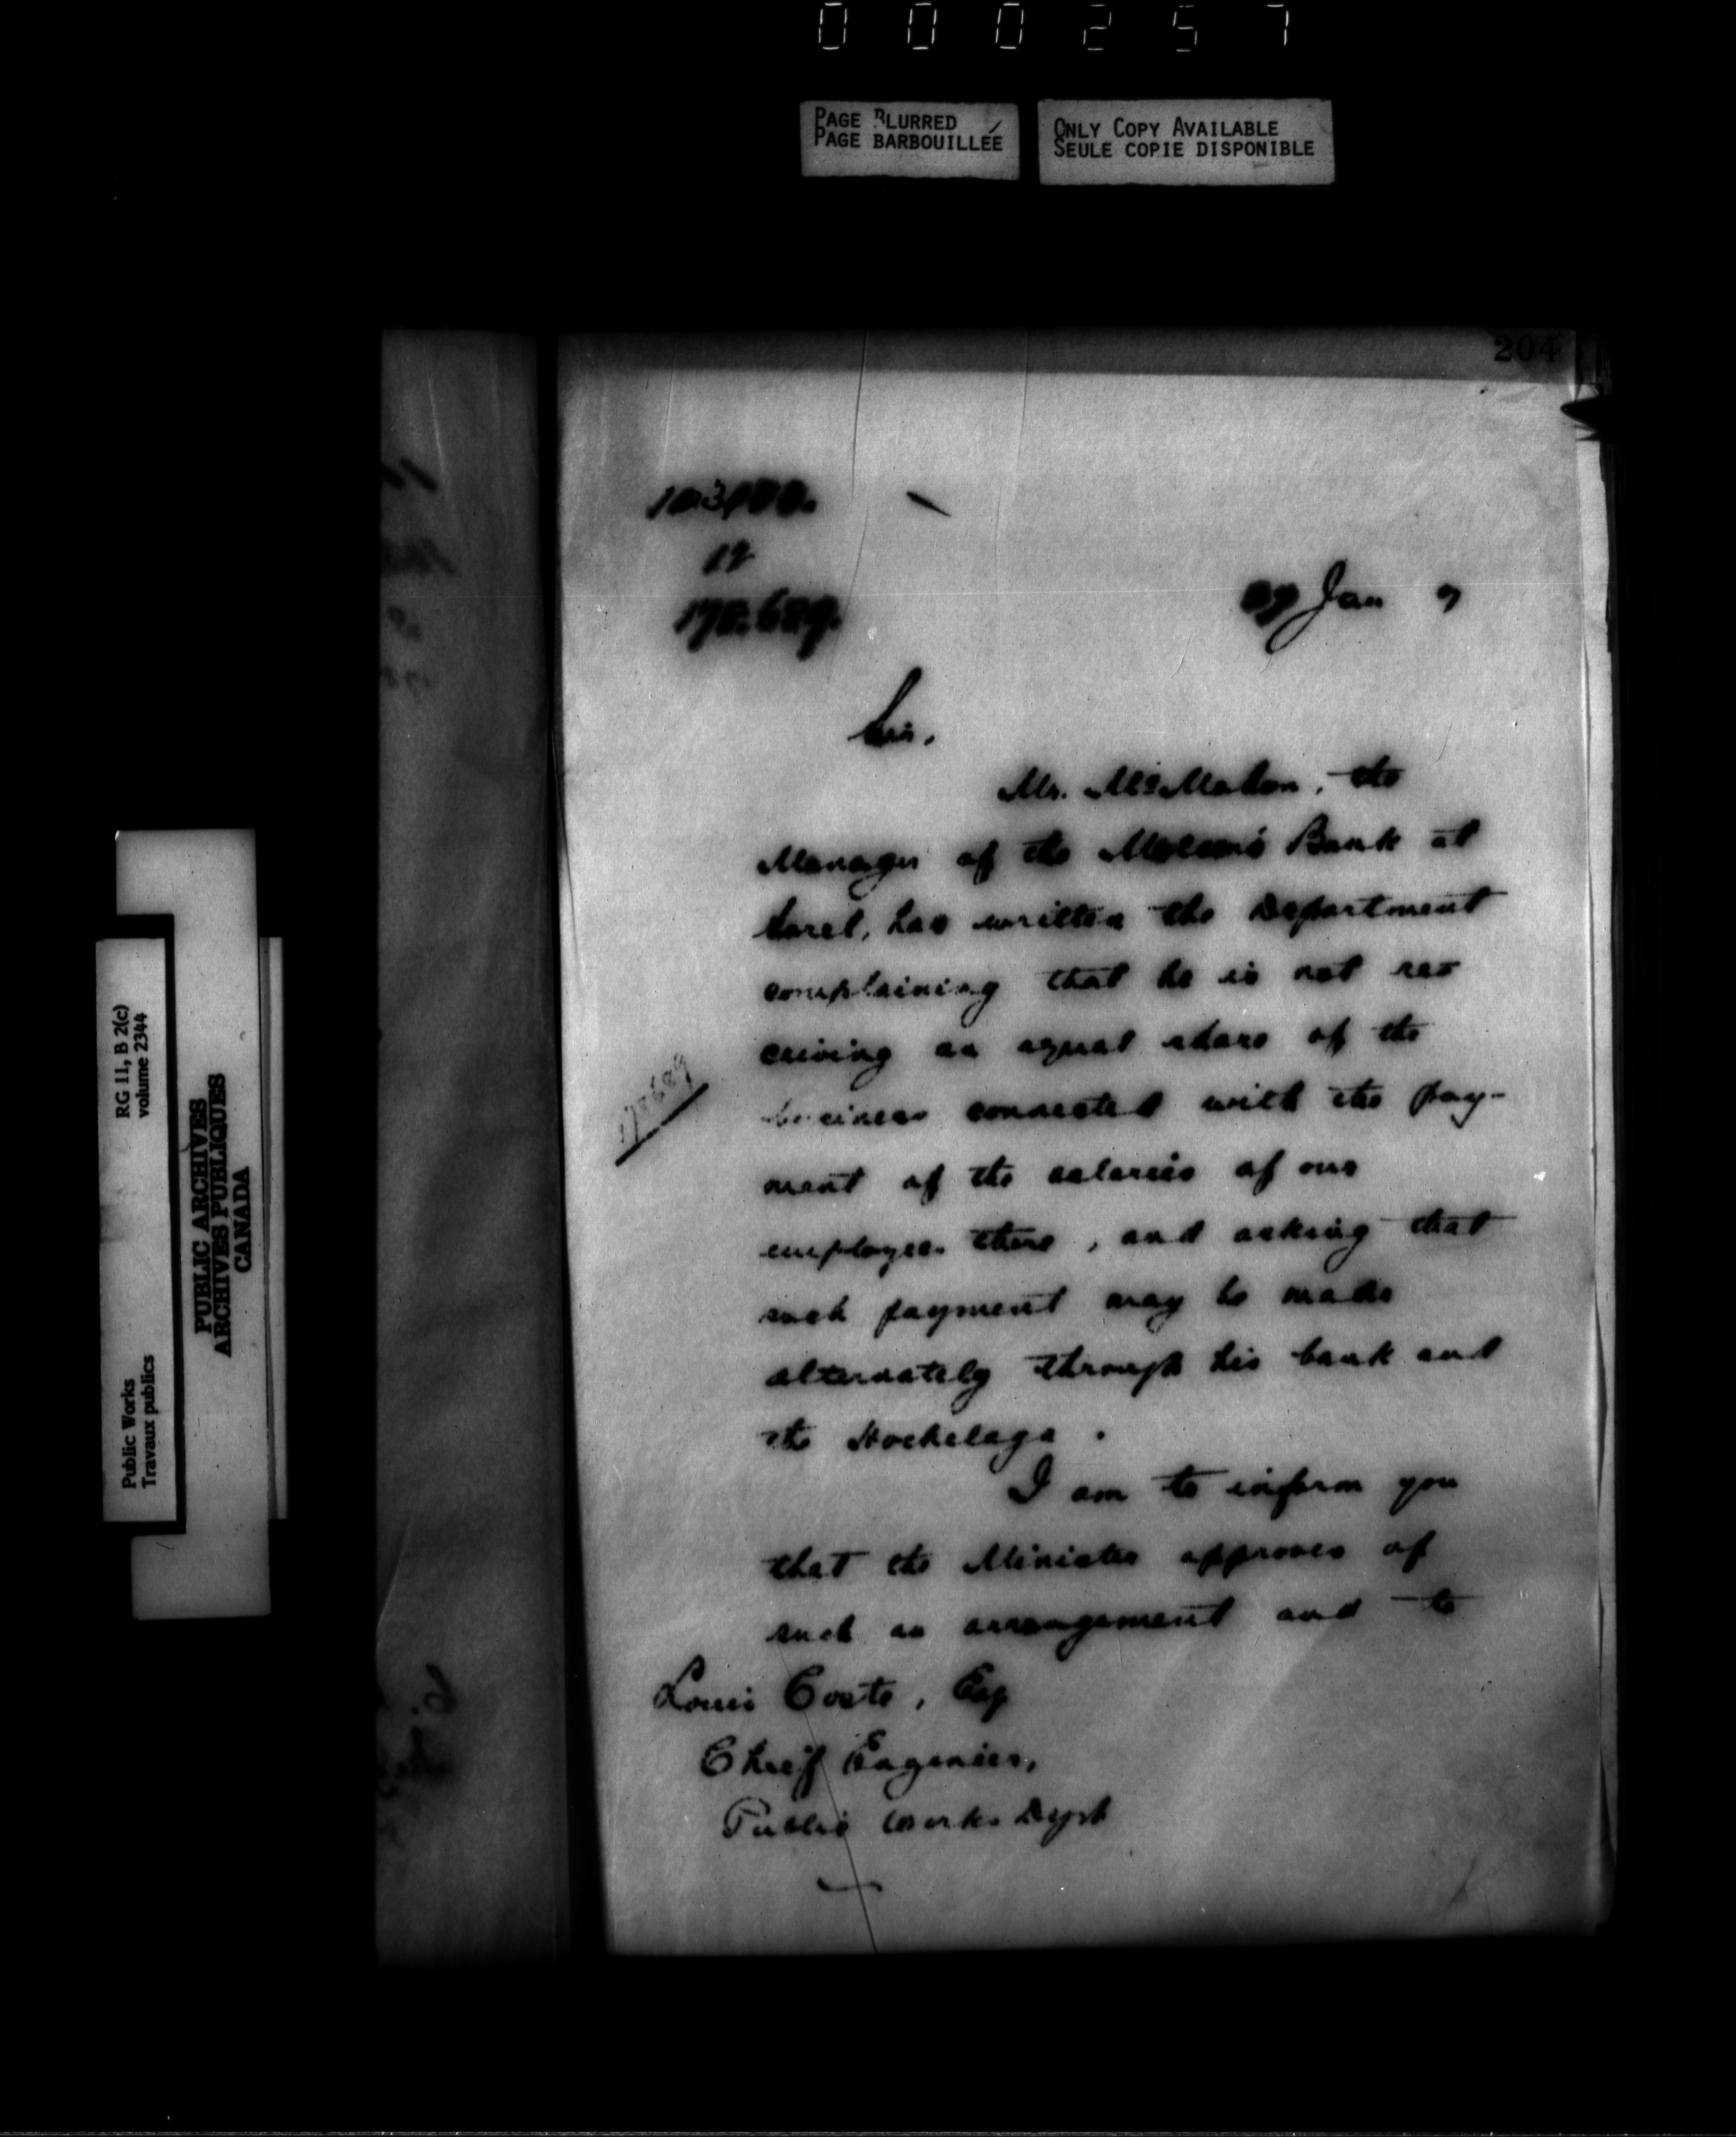 000257
PAGE BLURRED
PAGE BARBOUILLÉE
ONLY COPY AVAILABLE
SEULE COPIE DISPONIBLE
204
Jan 7
Sir,
Mr. McMahon, the
Manager of the Molsons Bank at
Sorel, has written the Department
complaining that he is not re-
ceiving an equal share of the
business connected with the pay-
ment of the salaries of our
employees there, and asking that
such payment may be made
alternately through his bank and
the Hochelaga.
I am to inform you
that the Minister approves of
such an arrangement and to
Louis Coste, Esq
Chief Engineer,
Public Works Dept
RG 11, B 2(c)
volume 2344
Public Works
Travaux publics
PUBLIC ARCHIVES
ARCHIVES PUBLIQUES
CANADA